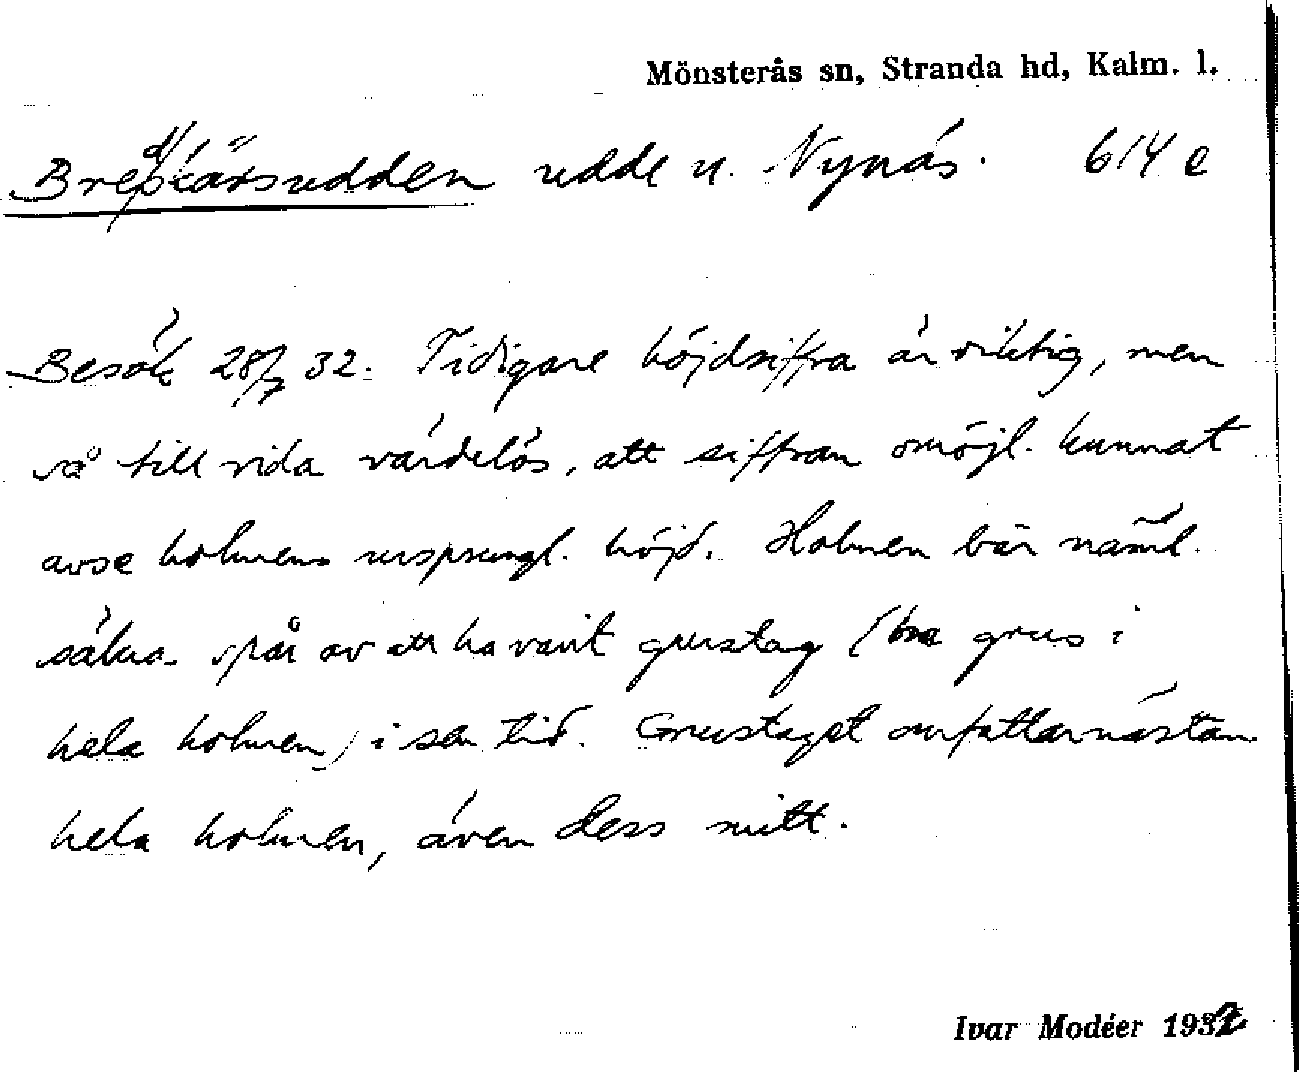 Mönsterås sn, Stranda hd, Kalm. l.
Breskärsudden udde u. Nynäs. 614 e
Besök 28/7 32. Tidigare höjdsiffra är riktig, men
så till vida värdelös, att siffran omöjl. kunnat
avse holmens ursprungl. höjd. Holmen bär näml.
säkra spår av att ha varit grustag (bra grus i
hela holmen) i sen tid. Grustaget omfattar nästan
hela holmen, även dess mitt.
Ivar Modéer 1932